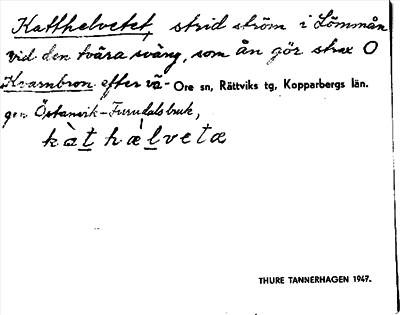 Katthelvetet, strid ström i Lömmån
vid den tvära sväng, som ån gör strax O
Kvarnbron efter vä- Ore sn, Rättviks tg, Kopparbergs län.
gen Östanvik-Furudalsbruk,
kàt hælvetæ
THURE TANNERHAGEN 1947.